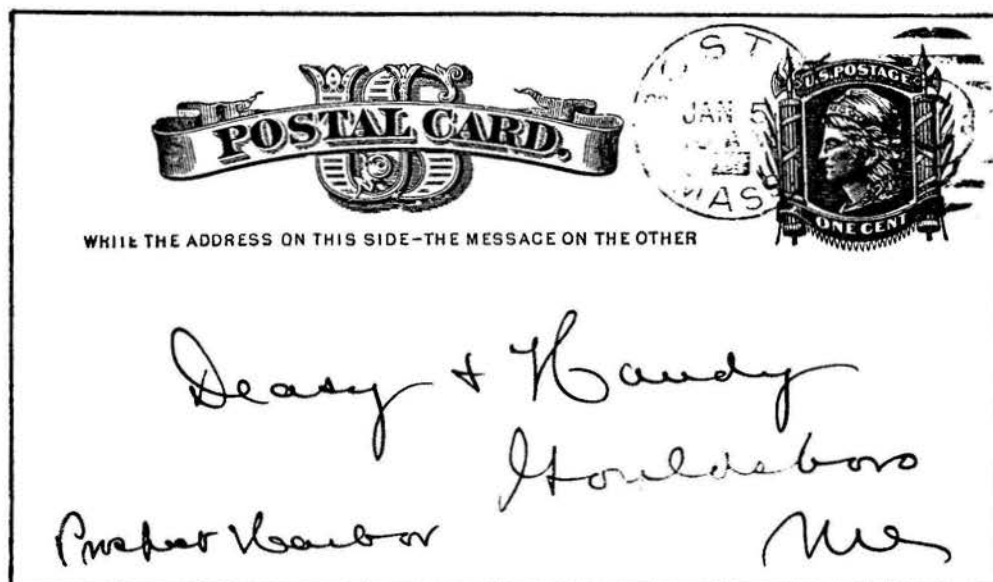 US
POSTAL CARD.
WRITE THE ADDRESS ON THIS SIDE–THE MESSAGE ON THE OTHER
OST
JAN 5
MAS
U.S. POSTAGE
ONE CENT
Deasy + Handy
Gouldsboro
Prospect Harbor
Me